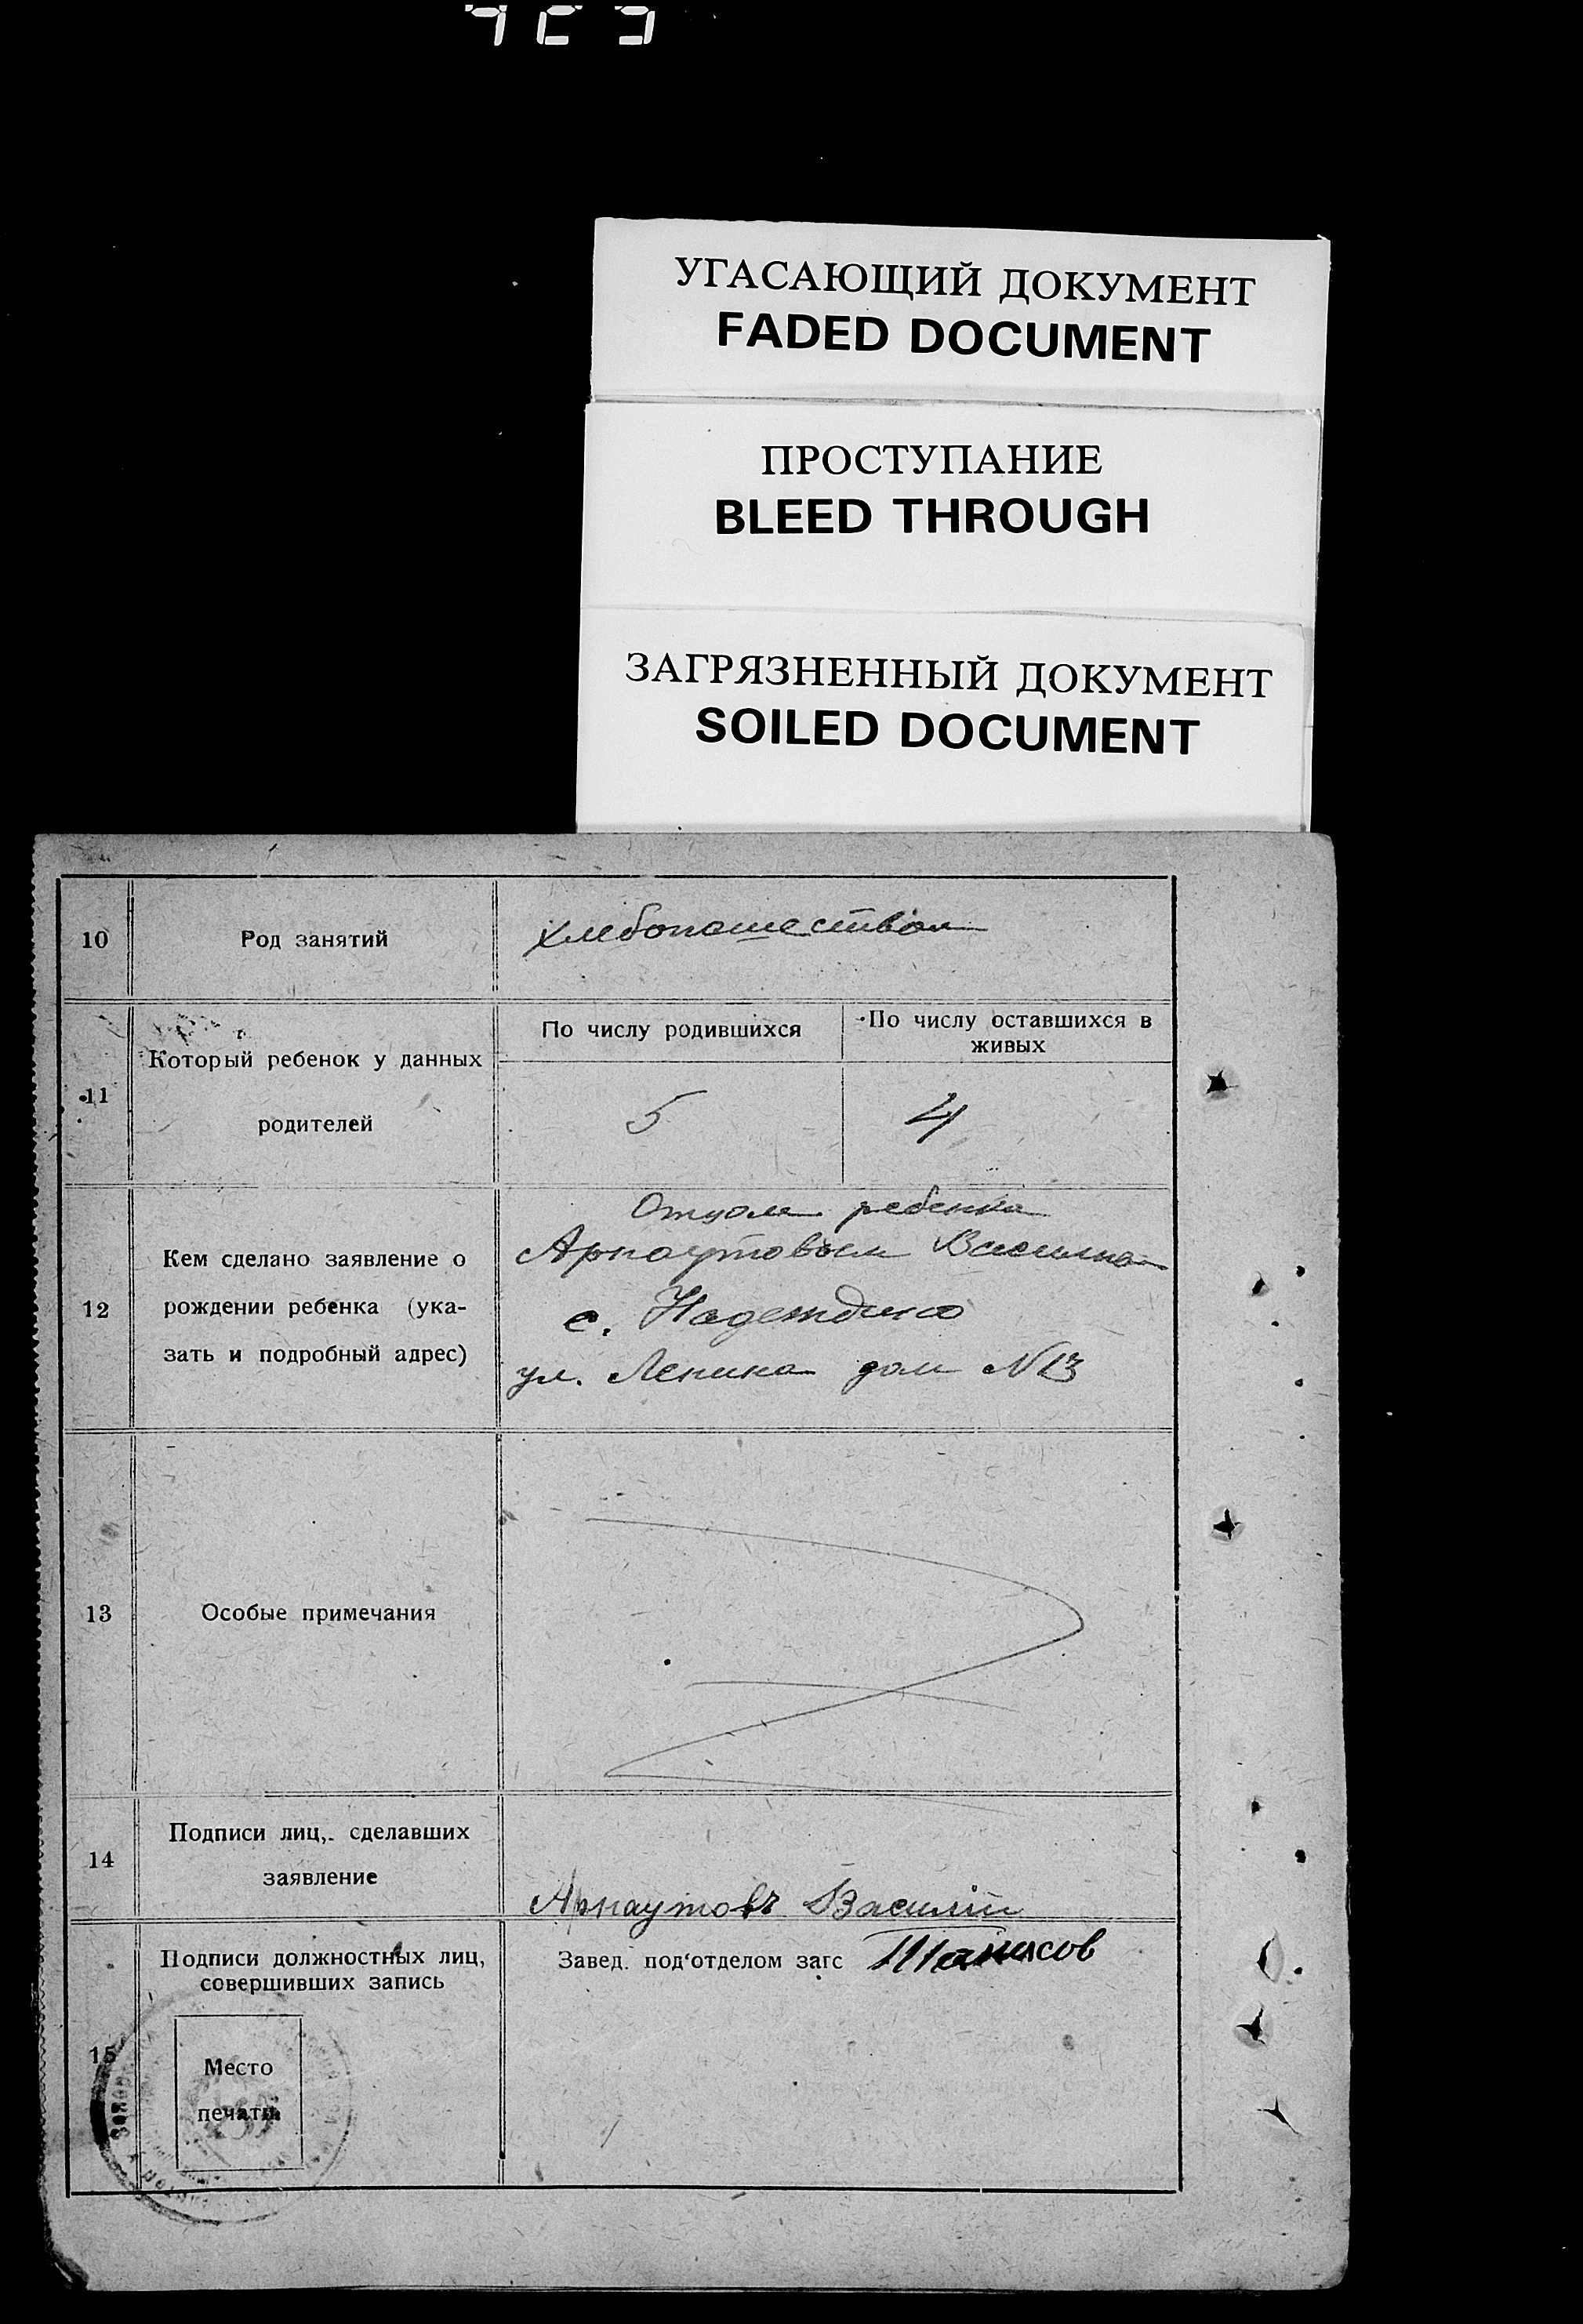 УГАСАЮЩИЙ ДОКУМЕНТ
FADED DOCUMENT
ПРОСТУПАНИЕ
BLEED THROUGH
ЗАГРЯЗНЕННЫЙ ДОКУМЕНТ
SOILED DOCUMENT
10
Род занятий
хлебопашеством
11
Который ребенок у данных
родителей
По числу родившихся
По числу оставшихся в
живых
5
4
12
Кем сделано заявление о
рождении ребенка (ука-
зать и подробный адрес)
Отцом ребенка
Арнаутовым Василием
с. Надеждино
ул. Ленина дом N 13
13
Особые примечания
14
Подписи лиц, сделавших
заявление
Арнаутовъ Василій
15
Подписи должностных лиц,
совершивших запись
Место
печати
Завед. под'отделом загс